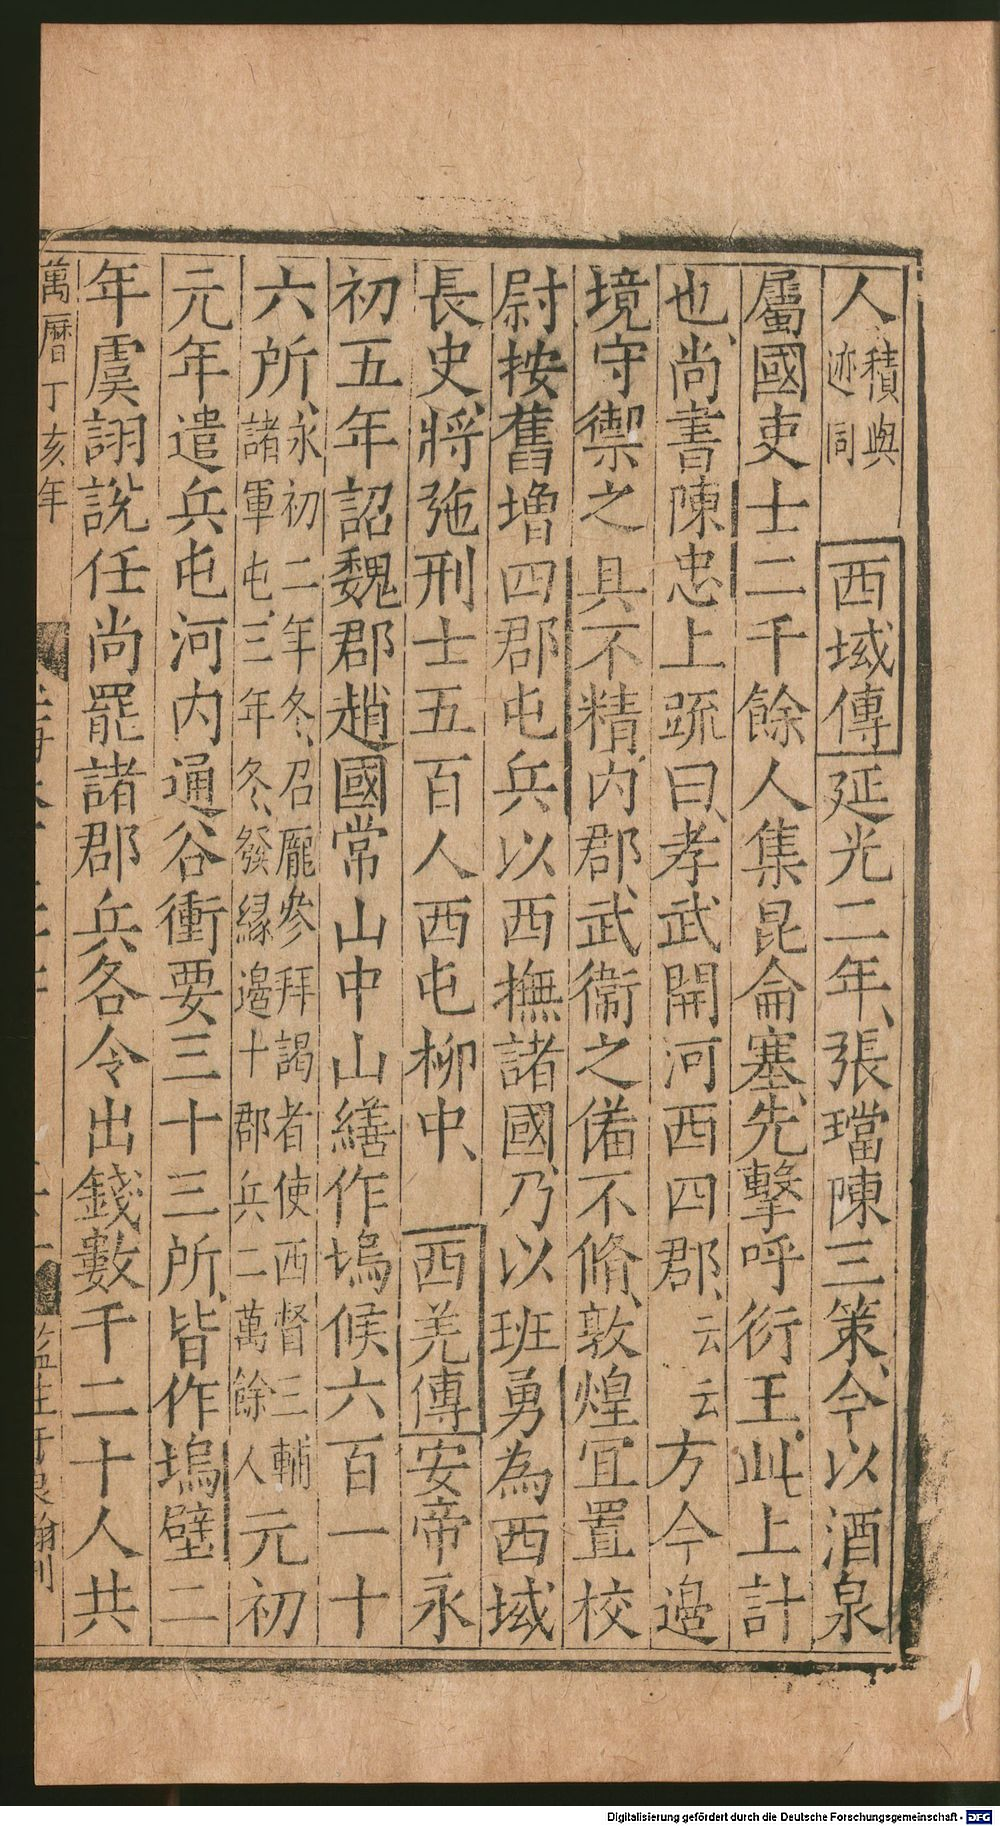 人積與迹同西域傳延光二年張璫陳三策今以酒泉
屬國吏士二千餘人集昆侖塞先擊呼衍王此上計
也尚書陳忠上疏曰孝武開河西四郡云云方今邊
境守禦之具不精內郡武衞之備不脩敦煌宜置校
尉按舊增四郡屯兵以西撫諸國乃以班勇為西域
長史將㢮刑士五百人西屯柳中西羌傳安帝永
初五年詔魏郡趙國常山中山繕作塢候六百一十
六所永初二年冬召龎參拜謁者使西督三輔諸軍屯三年冬發緣邊十郡兵二萬餘人元初
元年遣兵屯河內通谷衝要三十三所皆作塢壁二
年虞詡說任尚罷諸郡兵各令出錢數千二十人共
萬曆丁亥年
Digitalisierung gefördert durch die Deutsche Forschungsgemeinschaft - DFG